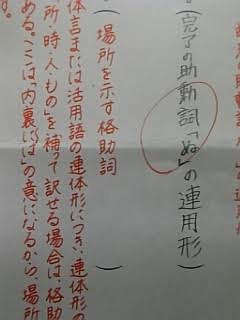 。(完了の助動詞「ぬ」の連用形)
(場所を示す格助詞)
体言または活用語の連体形につき、連体形の
所・時・人・もの」を補って訳せる場合は、格助
ある。ここは「内裏には」の意になるから、場所
す。